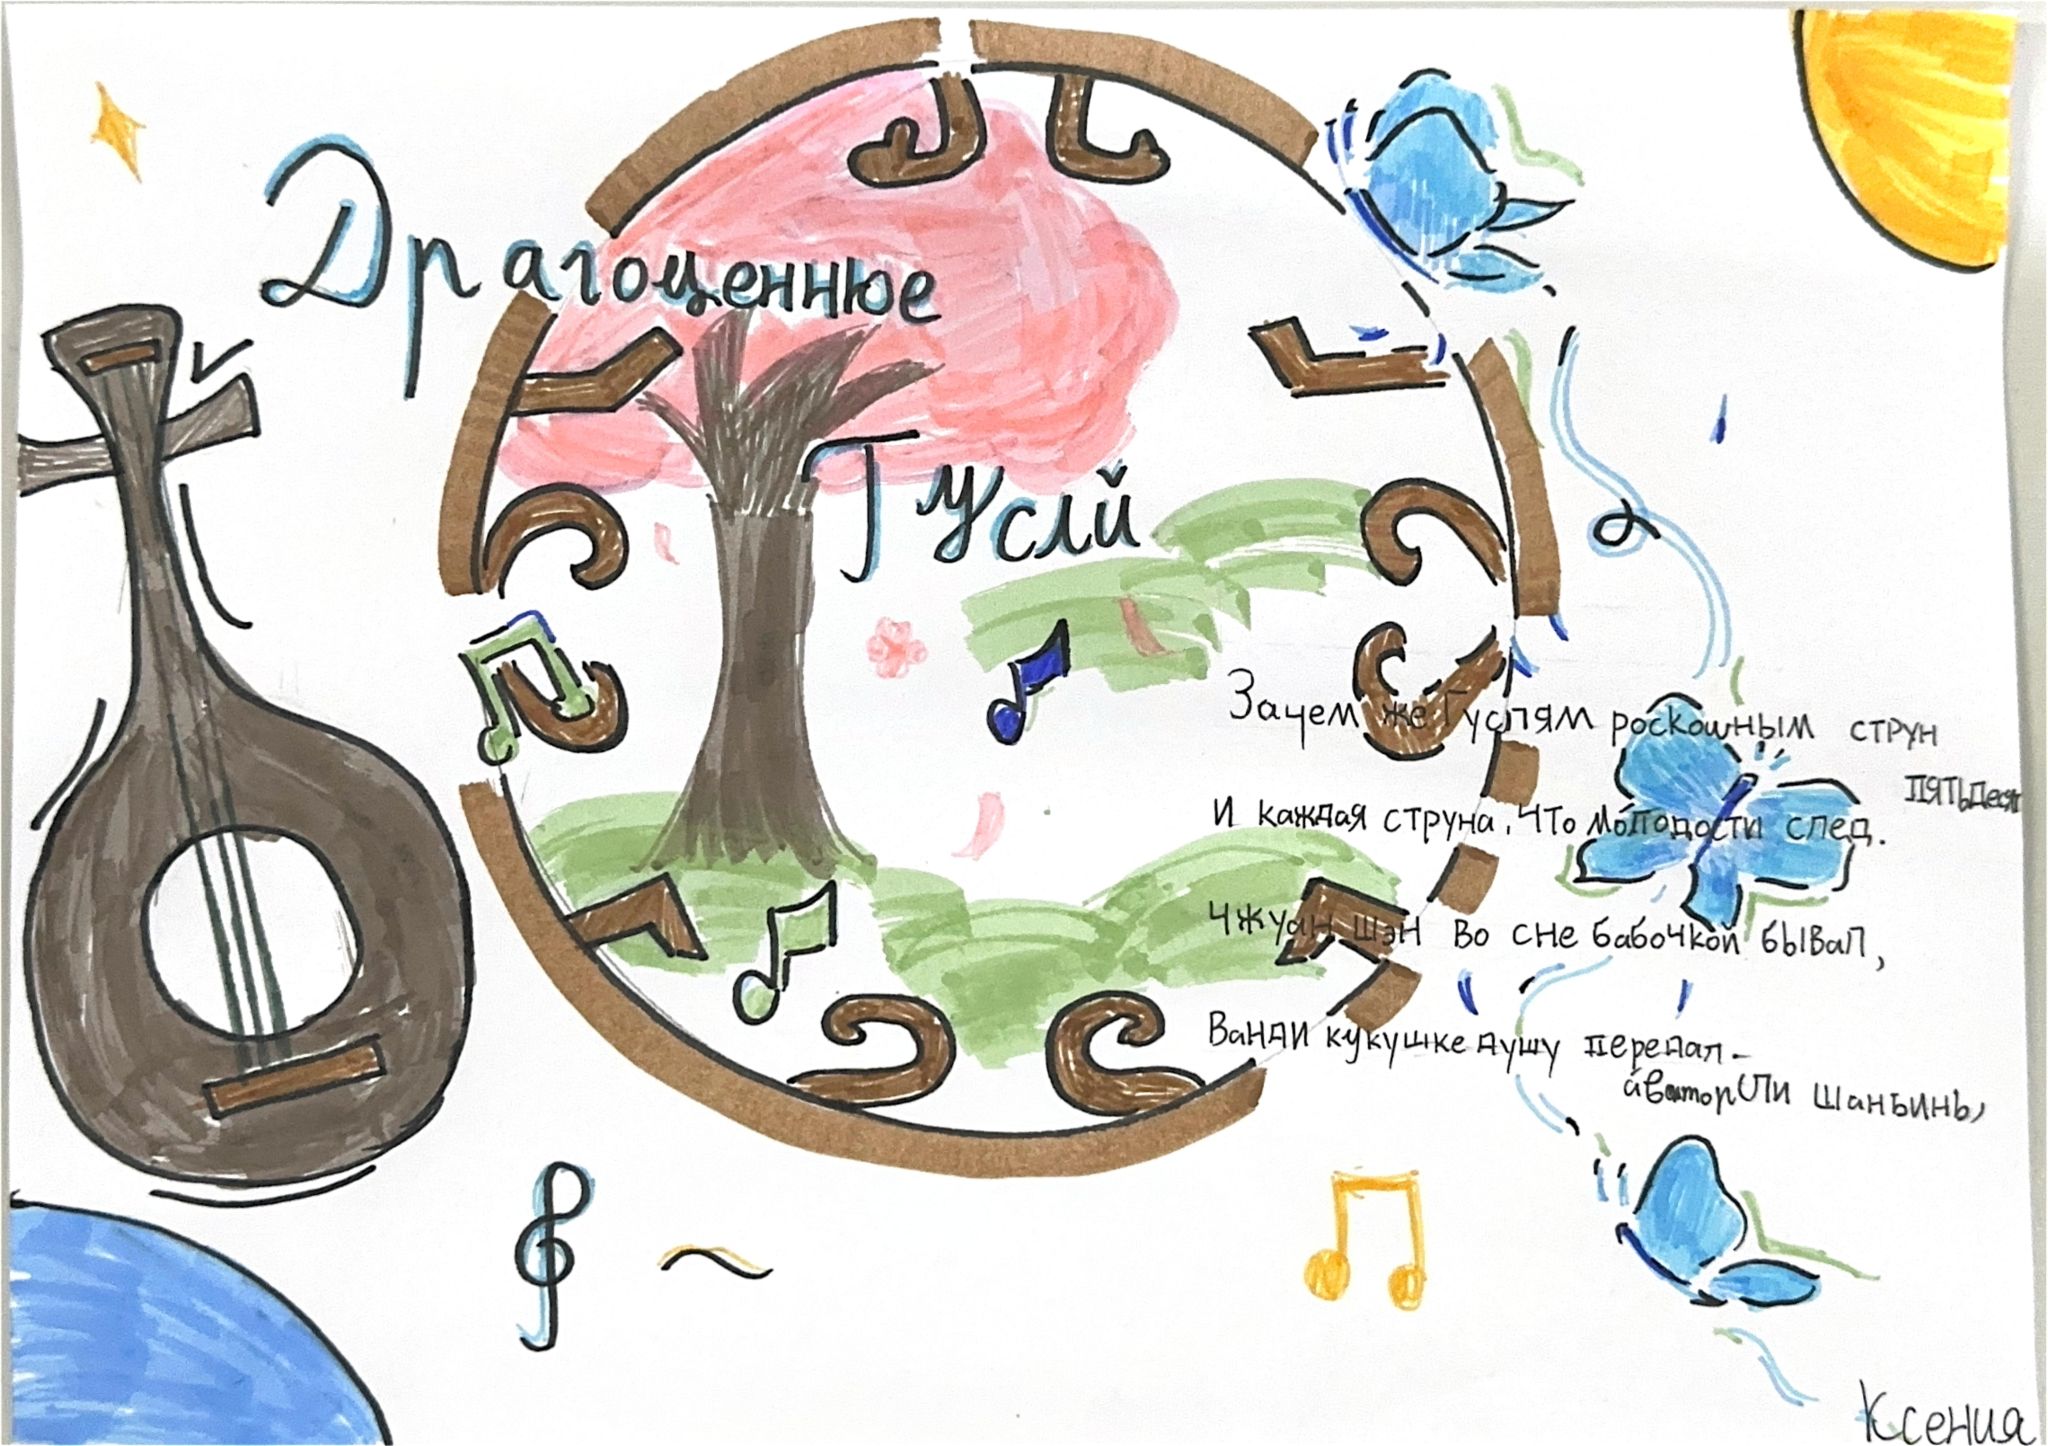 Драгоценные
Гусли
Зачем же Гуслям роскошным струн
пятьдесят
И каждая струна, что молодости след.
Чжуан Шэн во сне бабочкой бывал,
Ванди кукушке душу передал -
автор Ли Шанъинь
Ксения